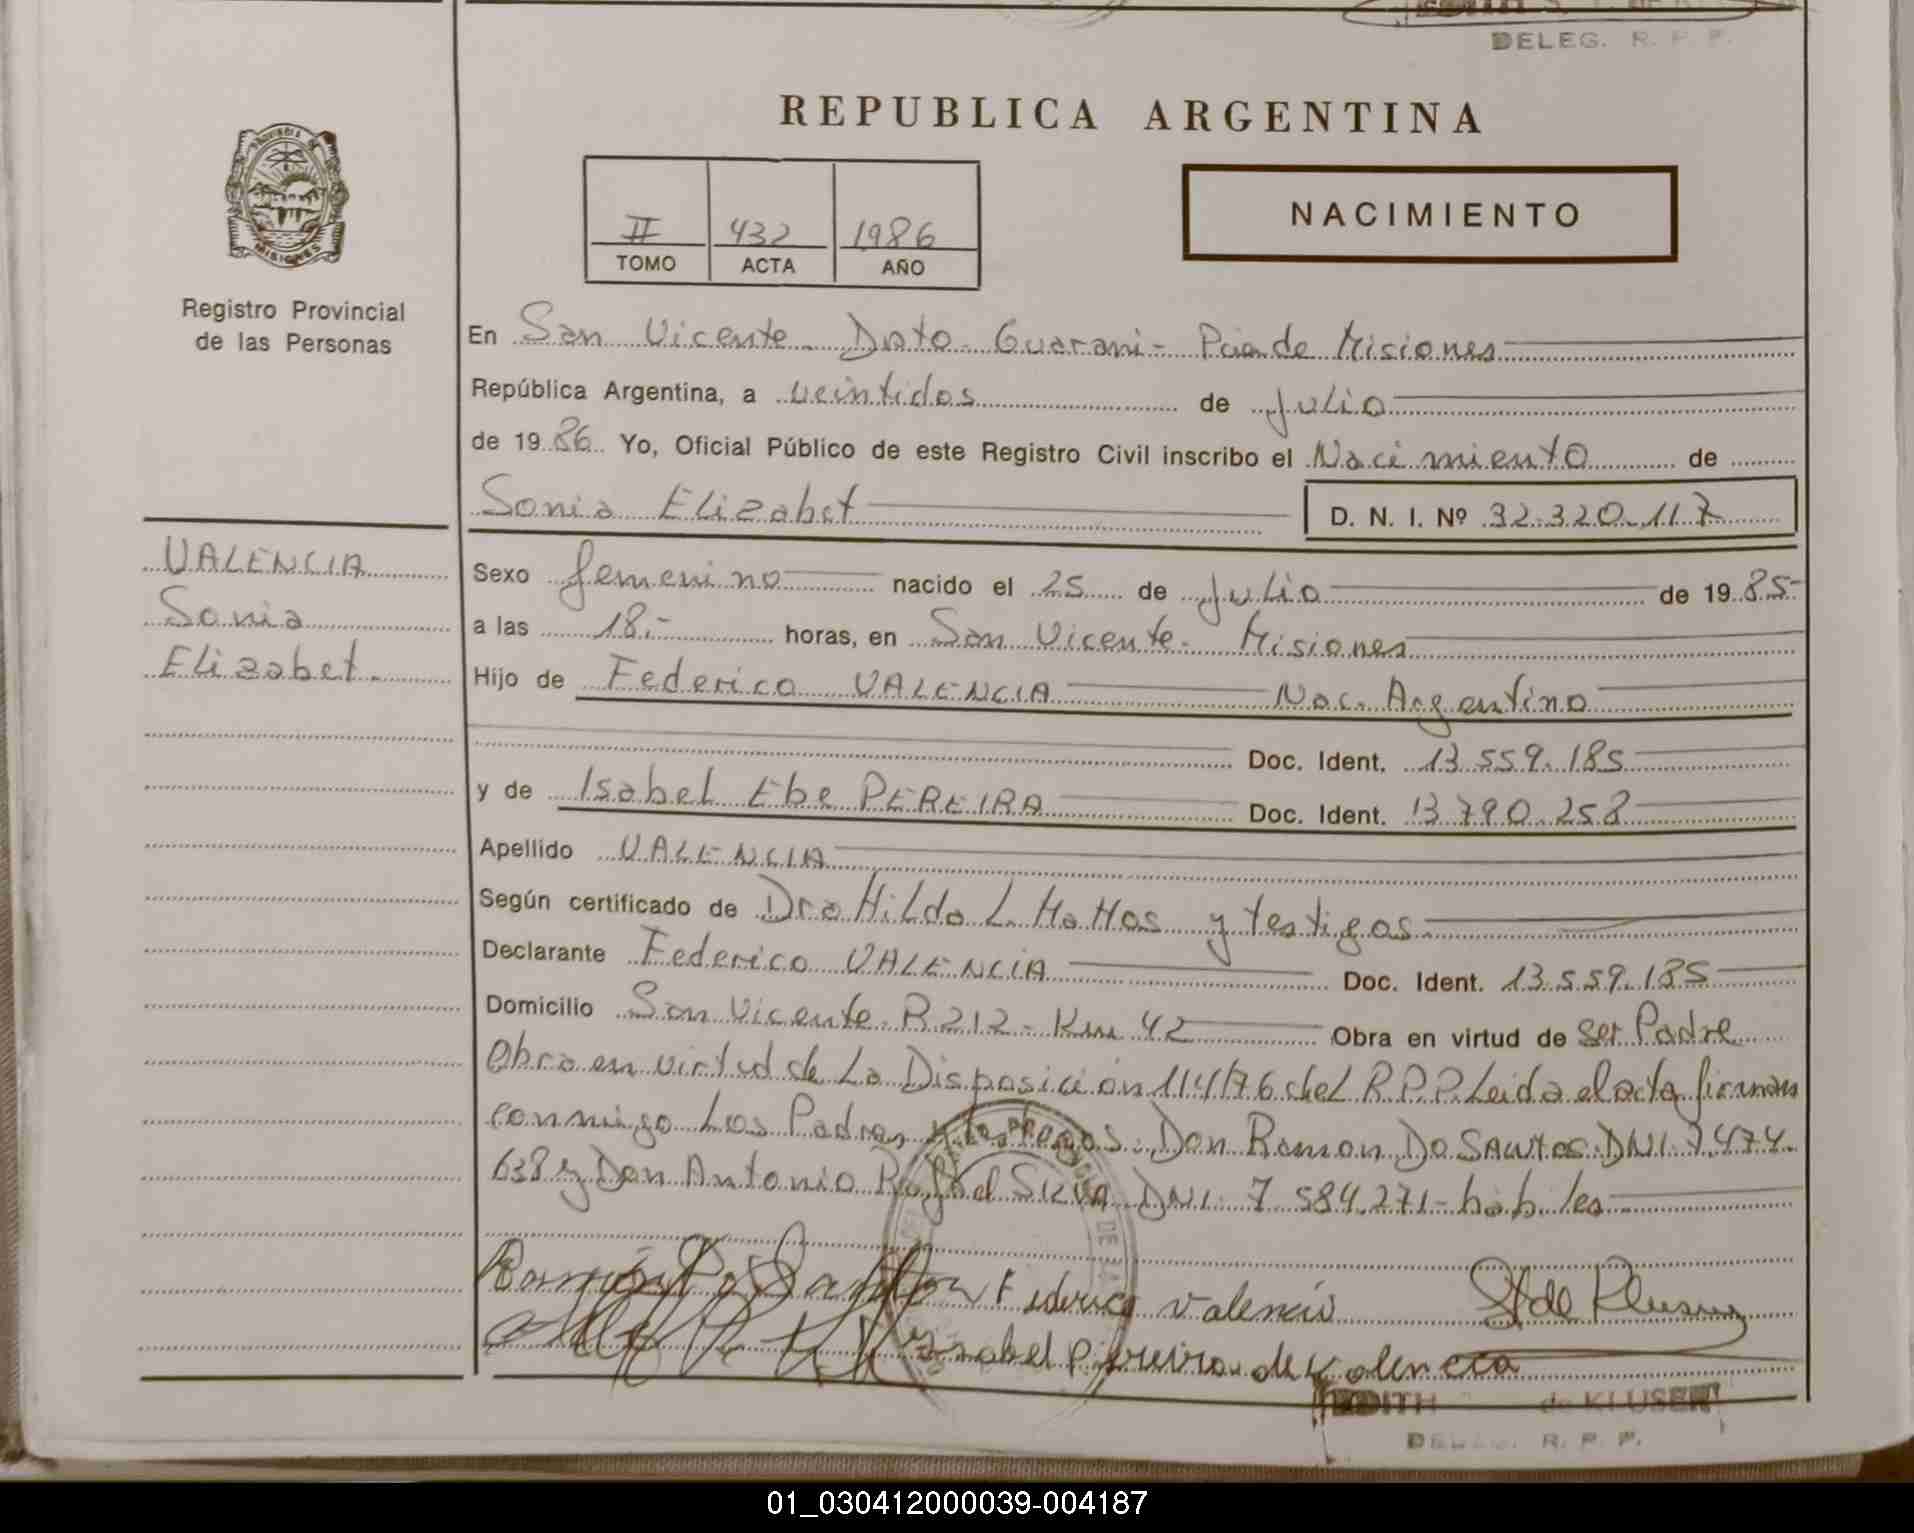 DELEG. R. P. P.
REPUBLICA ARGENTINA
PROVINCIA DE
MISIONES
II 432 1986
TOMO ACTA AÑO
NACIMIENTO
Registro Provincial
de las Personas
En San Vicente. Dpto. Guarani - Pcia de Misiones
República Argentina, a veintidos de Julio
de 1986 Yo, Oficial Público de este Registro Civil inscribo el Nacimiento de
Sonia Elizabet D. N. I. Nº 32.320.117
VALENCIA
Sonia
Elizabet.
Sexo femenino nacido el 25 de Julio de 1985-
a las 18.- horas, en San Vicente. Misiones
Hijo de Federico VALENCIA Nac. Argentino
Doc. Ident. 13.559.185
y de Isabel Ebe PEREIRA Doc. Ident. 13.790.258
Apellido VALENCIA
Según certificado de Dra Hilda L. Mattos y testigos
Declarante Federico VALENCIA Doc. Ident. 13.559.185
Domicilio San Vicente. R 212 - Km 42 Obra en virtud de ser Padre
Obra en virtud de La Disposición 114/76 del R.P.P. Leida el acta firman
conmigo Los Padres y testigos: Don Ramon Do Santos DNI. 7.474.
638 y Don Antonio Rafael SILVA DNI. 7.584.271 - habiles
Ramón Do Santos Federico Valencia
Isabel Pereira de Valencia
EDITH de KLUSER
DELEG. R. P. P.
01_030412000039-004187